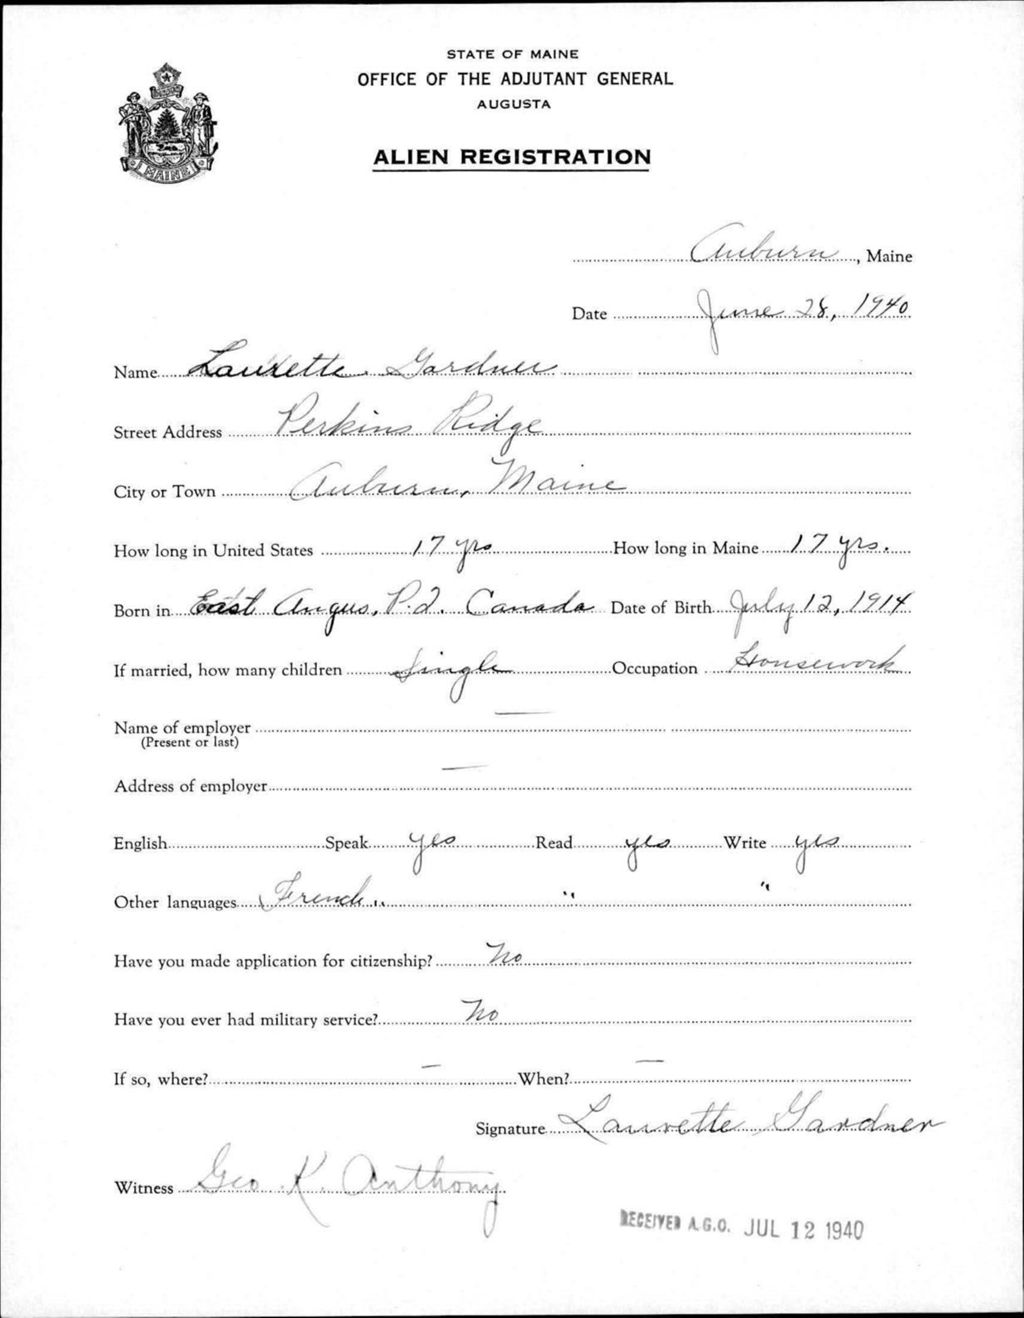 STATE OF MAINE
OFFICE OF THE ADJUTANT GENERAL
AUGUSTA
ALIEN REGISTRATION
MAINE
Auburn, Maine
Date June 28, 1940
Name Laurette Gardner
Street Address Perkins Ridge
City or Town Auburn, Maine
How long in United States 17 yrs How long in Maine 17 yrs.
Born in East Angus, P.Q. Canada Date of Birth July 12, 1914
If married, how many children Single Occupation Housework
Name of employer —
(Present or last)
Address of employer —
English Speak yes Read yes Write yes
Other languages French " " "
Have you made application for citizenship? No
Have you ever had military service? No
If so, where? — When? —
Signature Laurette Gardner
Witness Geo K. Anthony
RECEIVED A.G.O. JUL 12 1940